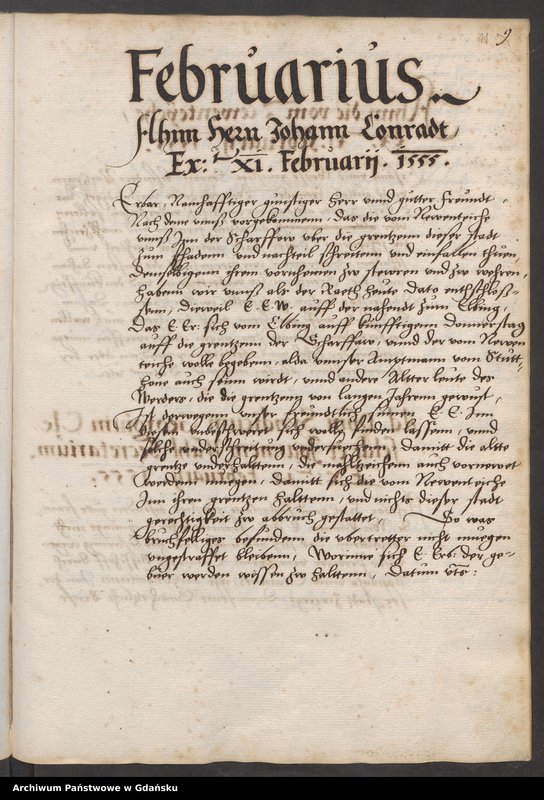 9
Februarius.
Ahnn Hern Johann Conradt
Ex: XI. Februarij. 1555.
Erbar, Namhafftiger gunstiger Herr vnnd gutter freundt,
Nach deme vnnß vorgekommenn, das die vom Nerventeiche
vnnß Inn der Scharffow vber die grentzenn dieser stadt
zum schadenn vnd nachteil schreitenn vnd einfallen thuen,
denselbigenn Ihrem vornehmenn zw stewren vnd zw wehren,
habenn wir vnnß alß der Raeth heute dato entschloß-
senn, dieweil E. E. W. auff der nahendt zum Elbing,
Das E. Er. sich vom Elbing auff kunfftigenn donnerstag
auff die grentzenn der Scharffaw, vnnd der vom Nerven
teiche wolle begebenn, alda vnnser Amptmann vom Stutt-
hone auch seinn wirdt, vnnd andere Alterleute des
Werders, die die grentzenn von langen Jahrenn gewust,
Ist derwegenn vnser freundtlich sinnen E. E. Inn
dieser vnbeschweret sich wolle finden lassenn, vnnd
solche vberschreitung vndersuchenn, damitt die altte
grentze vnderhalttenn, die mahlzeichenn auch vornewet
werdenn muegen, damitt sich die vom Nerventeiche
Inn ihren grentzen halttenn, vnd nichts dieser stadt
gerechtigkeit zw abbruch gestattet, So was
bruchselliges befundenn die vbertretter nicht muegen
vngestraffet bleibenn, Wornne sich E. Erb. der ge-
buer werden wissen zw halttenn, Datum vts:
Archiwum Państwowe w Gdańsku